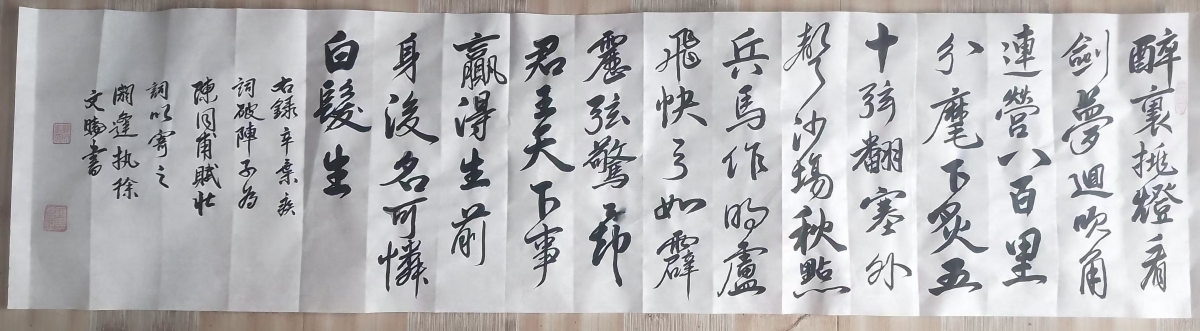 醉裏挑燈看
劍夢迴吹角
連營八百里
分麾下炙五
十弦翻塞外
聲沙場秋點
兵馬作的盧
飛快弓如霹
靂弦驚了却
君王天下事
贏得生前
身後名可憐
白髮生
右錄辛棄疾
詞破陣子為
陳同甫賦壯
詞以寄之
閼逢執徐
文暢書